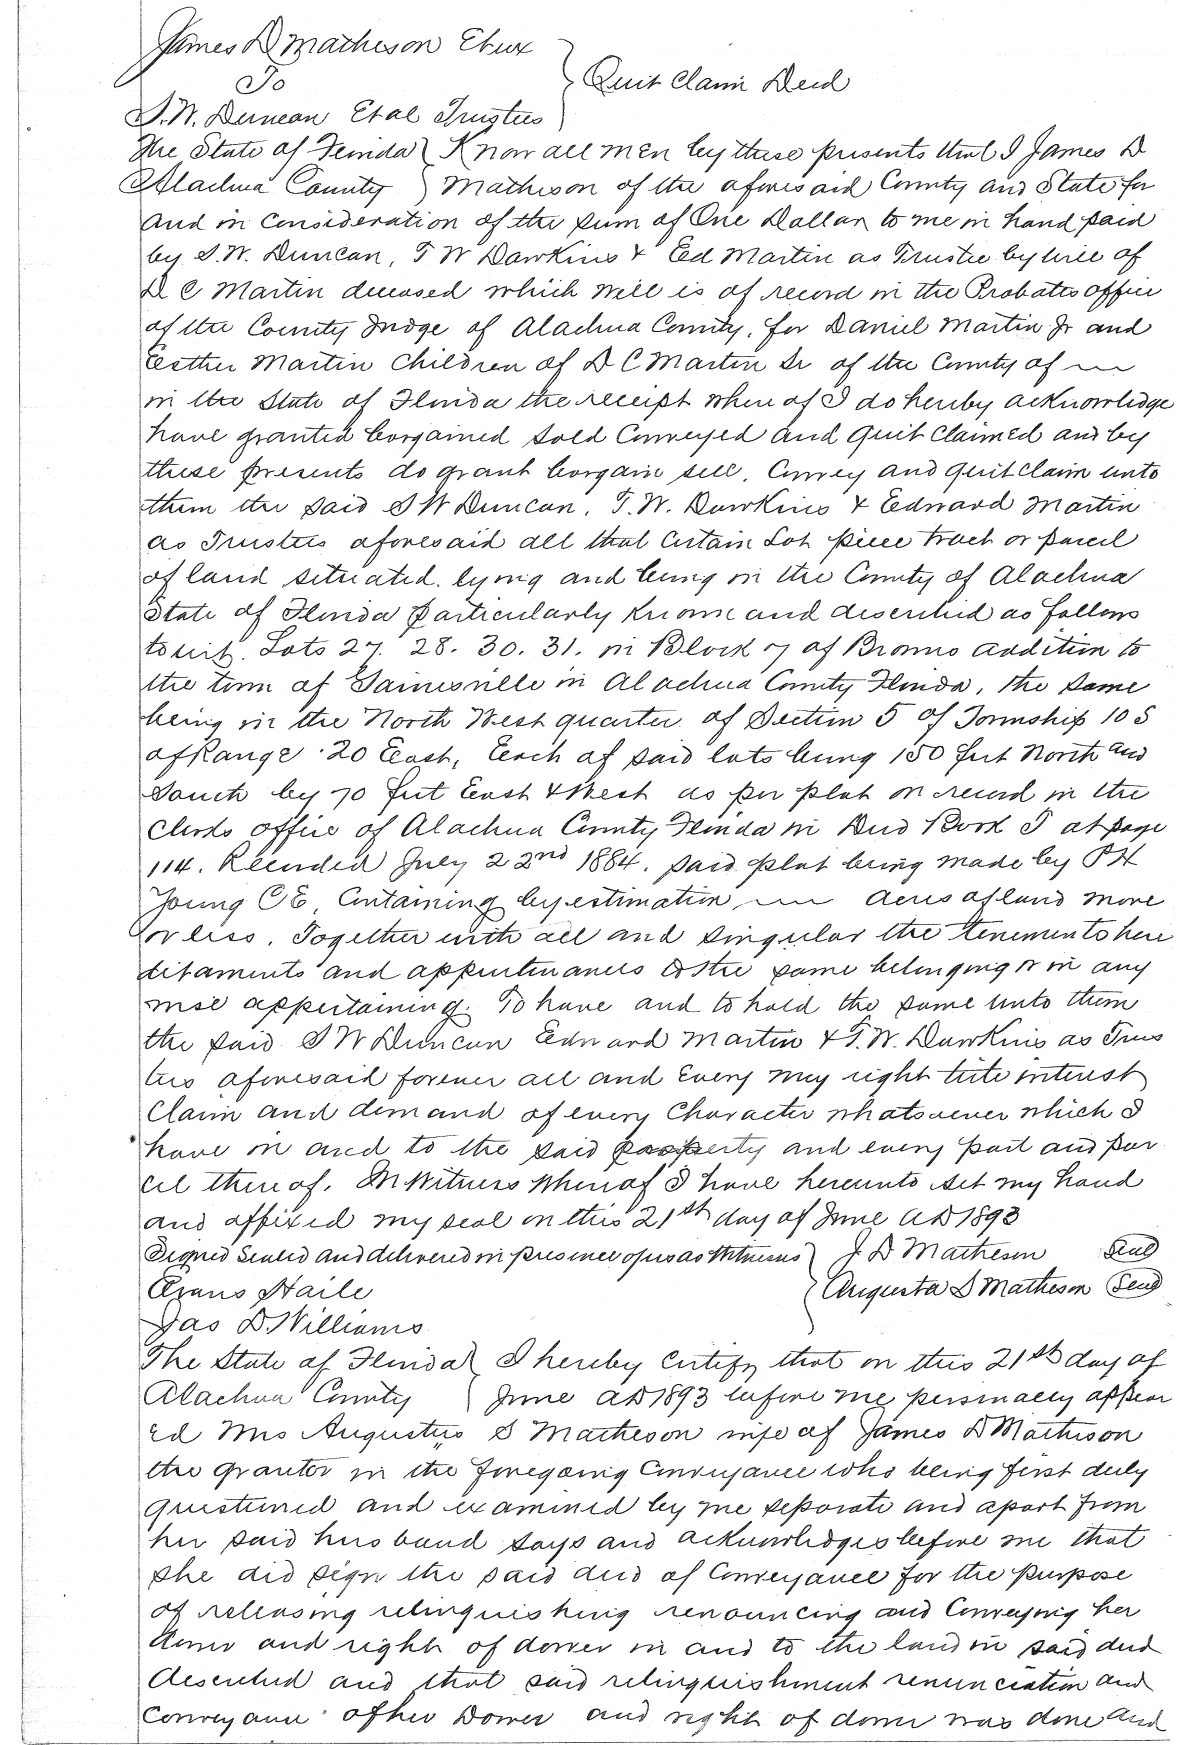 James D Matheson Et ux
To } Quit Claim Deed
S.W. Duncan Et al Trustees
The State of Florida } Know all men by these presents that I James D
Alachua County } Matheson of the aforesaid County and State for
and in consideration of the sum of One Dollar to me in hand paid
by S.W. Duncan, T W Dawkins & Ed Martin as Trustee by will of
D C Martin deceased which will is of record in the Probates office
of the County Judge of Alachua County, for Daniel Martin Jr and
Esther Martin Children of D C Martin Sr of the County of
in the State of Florida the receipt where of I do hereby acknowledge
have granted bargained sold Conveyed and quit claimed and by
these presents do grant bargain sell, Convey and quit claim unto
them the said S W Duncan, T.W. Dawkins & Edward Martin
as Trustees aforesaid all that certain Lot piece tract or parcel
of land situated. lying and being in the County of Alachua
State of Florida particularly known and described as follows
to wit. Lots 27. 28. 30. 31. in Block 7 of Browns addition to
the town of Gainesville in Alachua County Florida, the same
being in the North West quarter of Section 5 of Township 10 S
of Range 20 East, Each of said lots being 150 feet North and
South by 70 feet East & West as per plat on record in the
Clerks office of Alachua County Florida in Deed Book T at page
114. Recorded July 22nd 1884. said plat being made by P H
Young C E, Containing by estimation acres of land more
or less. Together with all and singular the tenements here
ditaments and appurtenances to the same belonging or in any
wise appertaining. To have and to hold the same unto them
the said S W Duncan Edward Martin & T.W. Dawkins as Trus
tees aforesaid forever all and Every my right title interest
Claim and demand of every Character whatsoever which I
have in and to the said property and every part and par
cel thereof. In Witness Whereof I have hereunto set my hand
and affixed my seal on this 21st day of June AD 1893
Signed Sealed and delivered in presence of us as Witnesses } J D Matheson Seal
Evans Haile } Augusta S Matheson Seal
Jas D. Williams
The State of Florida } I hereby Certify that on this 21st day of
Alachua County } June AD 1893 before me personally appear
ed Mrs Augustus S Matheson wife of James D Matheson
the grantor in the foregoing Conveyance who being first duly
questioned and examined by me separate and apart from
her said husband says and acknowledges before me that
she did sign the said deed of Conveyance for the purpose
of releasing relinquishing renouncing and Conveying her
dower and right of dower in and to the land in said deed
described and that said relinquishment renunciation and
Conveyance of her Dower and right of dower was done and